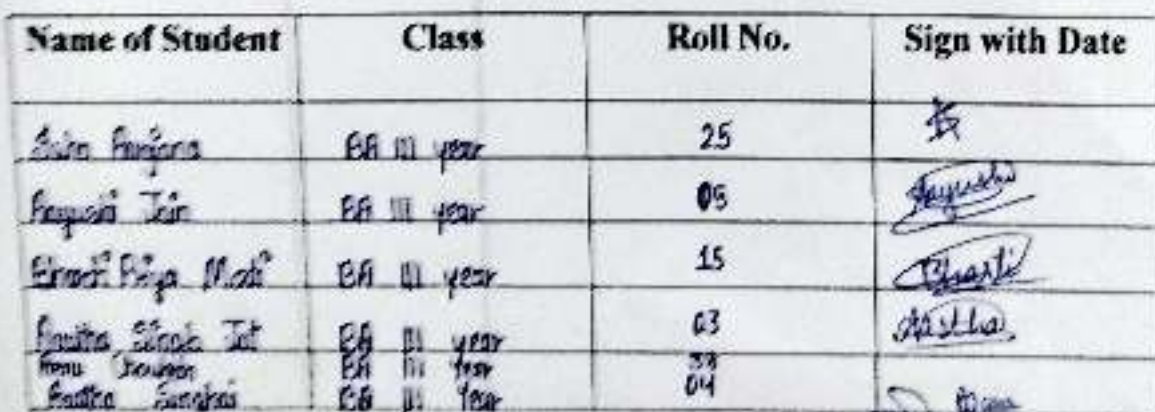 Name of Student Class Roll No. Sign with Date
Anjana BA III year 25
Aayushi Jain BA III year 05 Aayushi
Bharti Priya Modi BA III year 15 Bharti
Aastha Jat BA III year 03 Aastha
BA III Year
Aastha BA III Year 04